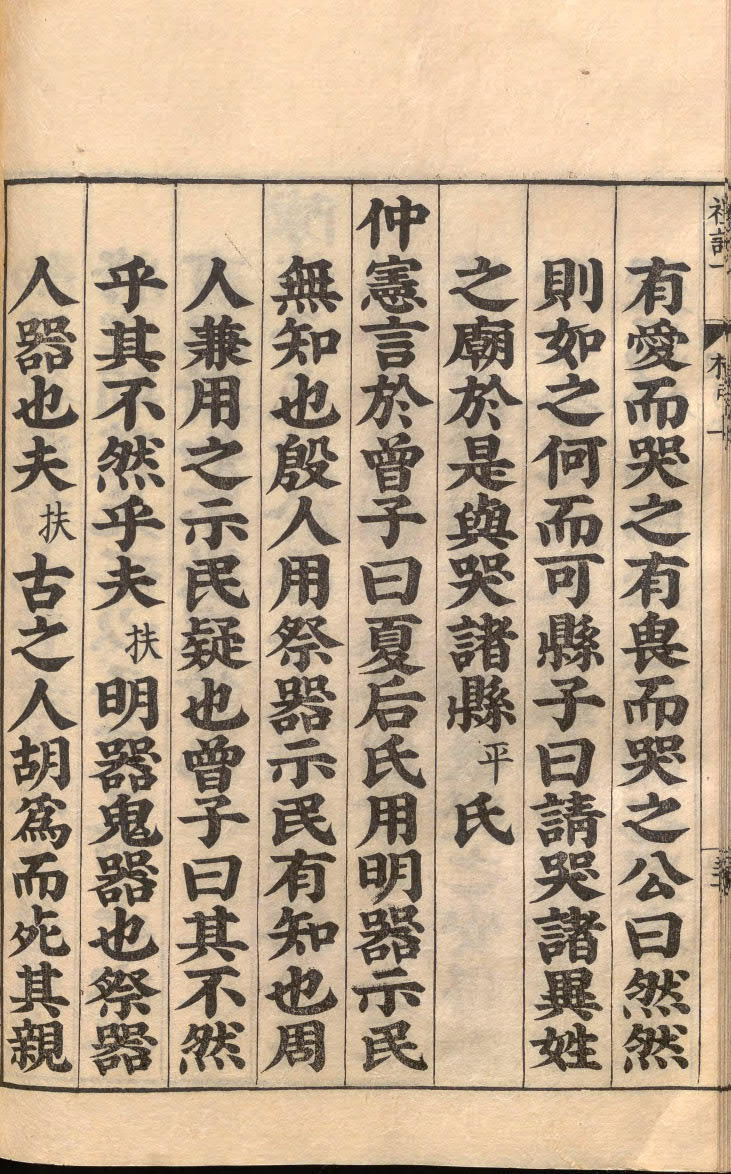 有愛而哭之有畏而哭之公曰然然
則如之何而可縣子曰請哭諸異姓
之廟於是與哭諸縣平氏
仲憲言於曾子曰夏后氏用明器示民
無知也殷人用祭器示民有知也周
人兼用之示民疑也曾子曰其不然
乎其不然乎夫扶明器鬼器也祭器
人器也夫扶古之人胡爲而死其親